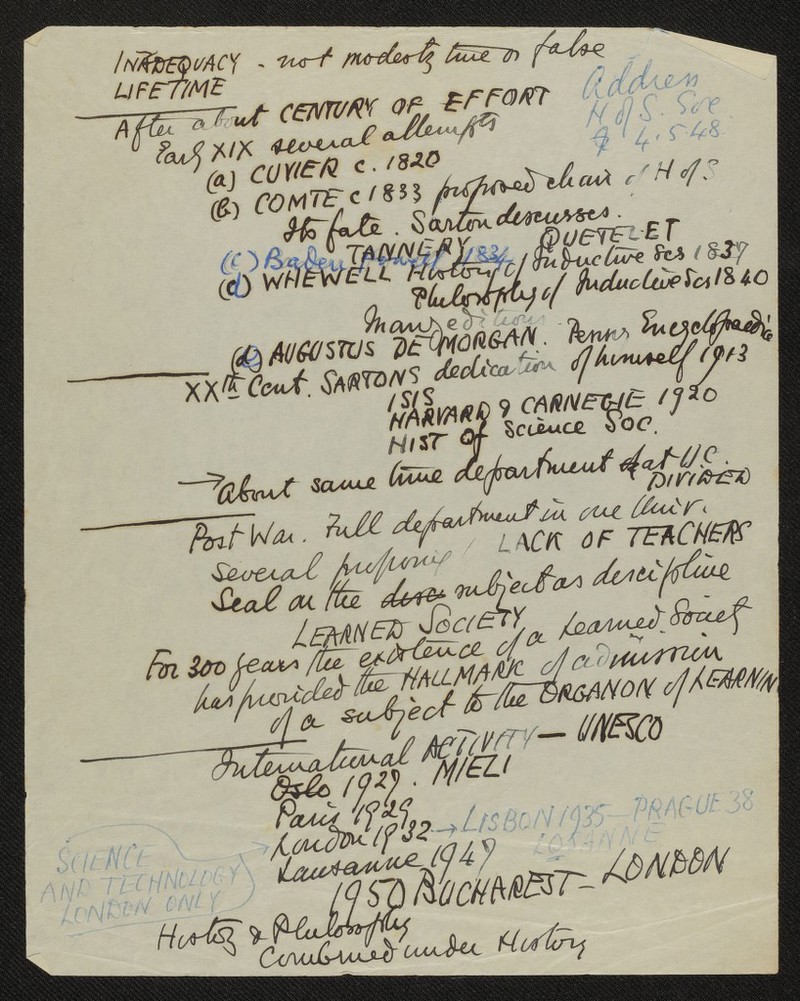 INADEQUACY - not modesty true or false
LIFETIME
Address
H of S. Soc
4.5.48.
After about CENTURY OF EFFORT
Early XIX several attempts
(a) CUVIER c. 1820
(b) COMTE c 1833 proposed chair of H of S
Its fate. Sarton discusses.
TANNERY QUETELET
(c) Baden Powell 1834
(d) WHEWELL History of Inductive Scs 1837
Philosophy of Inductive Scs 1840
Many editions
AUGUSTUS DE MORGAN. Penny Encyclopaedia
XXth Cent. SARTONS dedication of himself 1913
ISIS
HARVARD & CARNEGIE 1920
HIST of Science SOC.
→ About same time department at UC.
DIVIDED
Post War. Full department in one Univ.
Several proposing LACK OF TEACHERS
Seal on the disc subject as discipline
LEARNED SOCIETY
For 300 years the existence of a Learned Society
has provided the HALLMARK of admission
of a subject to the ORGANON of LEARNIN
International ACTIVITY — UNESCO
Oslo 1927. MIELI
Paris 1929
London 1932 → LISBON 1935 — PRAGUE 38
LOSANNE
Lausanne 1947
SCIENCE
AND TECHNOLOGY
LONDON ONLY
1950 BUCHAREST - LONDON
History & Philosophy
Combined under History